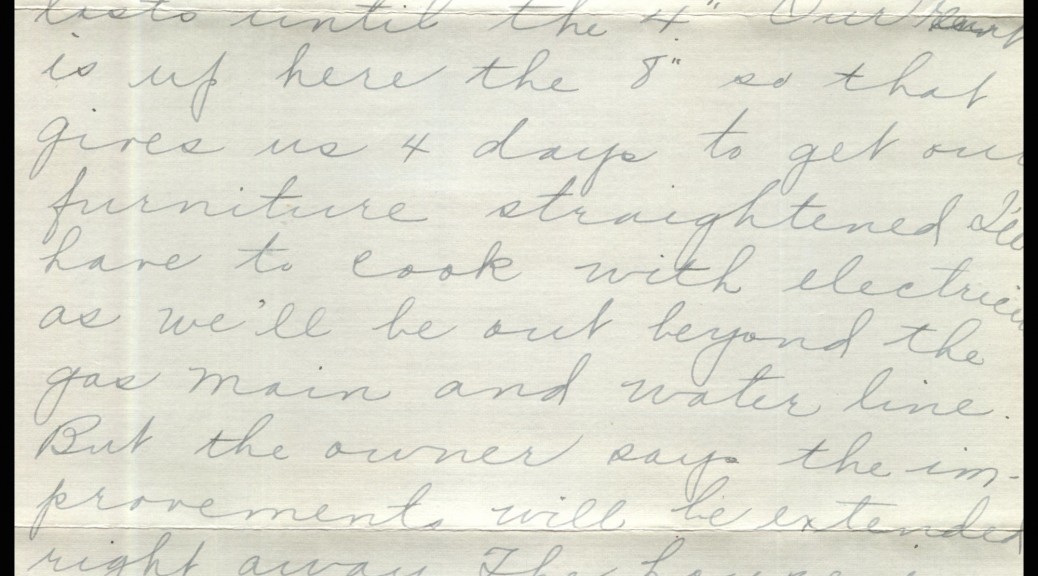 lasts until the 4" Our Rent
is up here the 8" so that
gives us 4 days to get our
furniture straightened I'll
have to cook with electrici
as we'll be out beyond the
gas main and water line.
But the owner says the im-
provements will be extended
right away The house